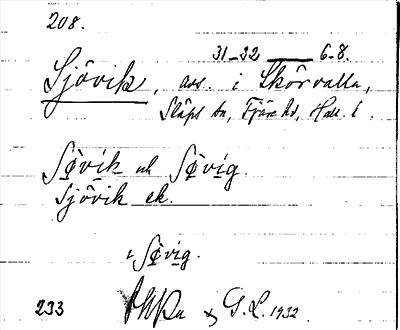 208.
31-32 — 6-8.
Sjövik, avs. i Skörvalla,
Släps sn, Fjäre hd, Hall. l.
Søvik och Søvig.
Sjövik ek.
i Søvig.
233 G.L. 1932